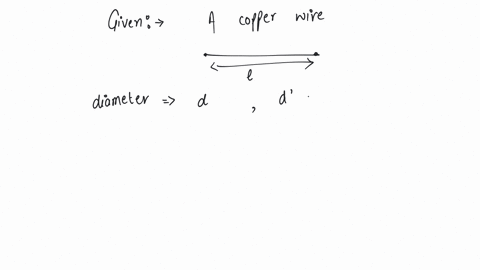 Given:→ A copper wire
l
diameter ⇒ d , d'